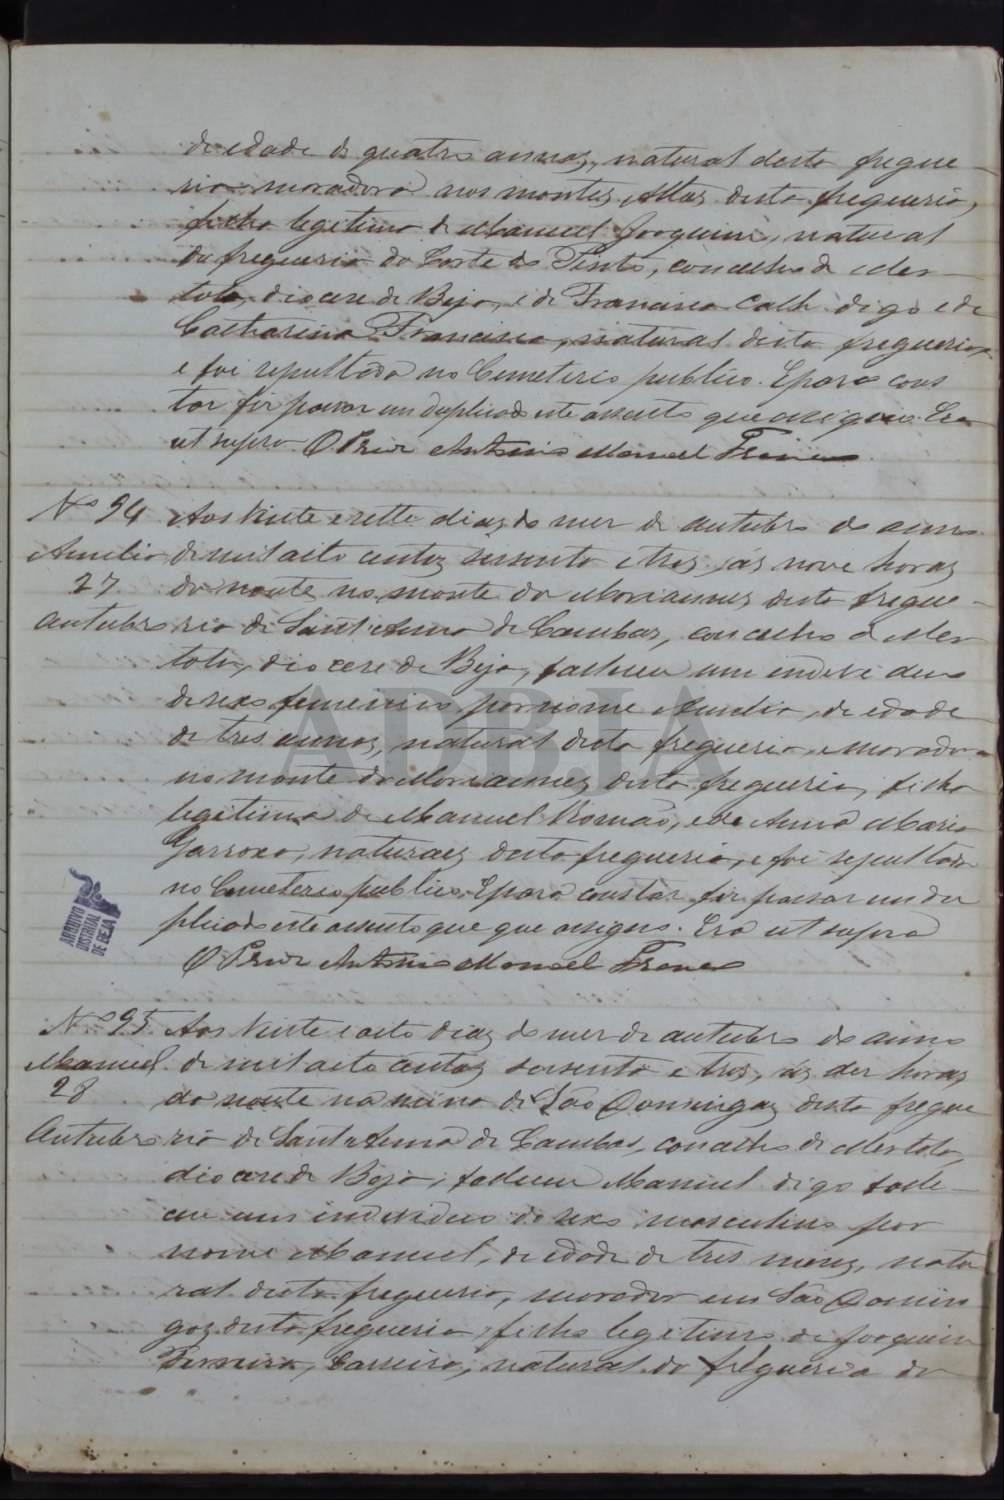 de edade de quatro annos, natural desta fregue-
sia moradora nos montes Altos desta freguesia,
filha legitima de Manuel Joaquim, natural
da freguesia do Corte do Pinto, concelho de Mer-
tola, diocese de Beja, e de Francisca Cath digo e de
Catharina Francisca, natural desta freguesia,
e foi sepultada no Cemeterio publico. E para cons
tar fiz passar em duplicado este assento que assigno. Era
ut supra O Prior Antonio Manoel Franco
Nº 94 Aos Vinte e sette dias do mez de outubro do anno
Amelia de mil oito centos sessenta e tres, ás nove horas
27 da noute no monte da Moriannes desta fregue-
Outubro sia de Sant Anna de Cambas, concelho de Mer
tola, diocese de Beja, falleceu um individuo
de sexo femenino por nome Amelia, de edade
de tres annos, natural desta freguesia, e morador
no monte da Moriannes desta freguesia, filha
legitima de Manuel Romão, e de Anna Maria
Garroxa, naturaes desta freguesia, e foi sepultada
no Cemeterio publico. E para constar fiz passar em du
plicado este assento que que assigno. Era ut supra
O Prior Antonio Manoel Franco
Nº 95 Aos Vinte e oito dias do mez de outubro do anno
Manuel de mil oito centos sessenta e tres, ás dez horas
28 da noute na mina de São Domingos desta fregue
Outubro sia de Santa Anna de Cambas, concelho de Mertola,
diocese de Beja, falleceu Manuel digo falle-
ceu um individuo do sexo masculino por
nome Manuel, de edade de tres mezes, natu
ral desta freguesia, morador em São Domin
gos desta freguesia, filho legitimo de Joaquim
Carreiro, natural da freguesia de
ADBJA
ARQUIVO
DISTRITAL
DE BEJA